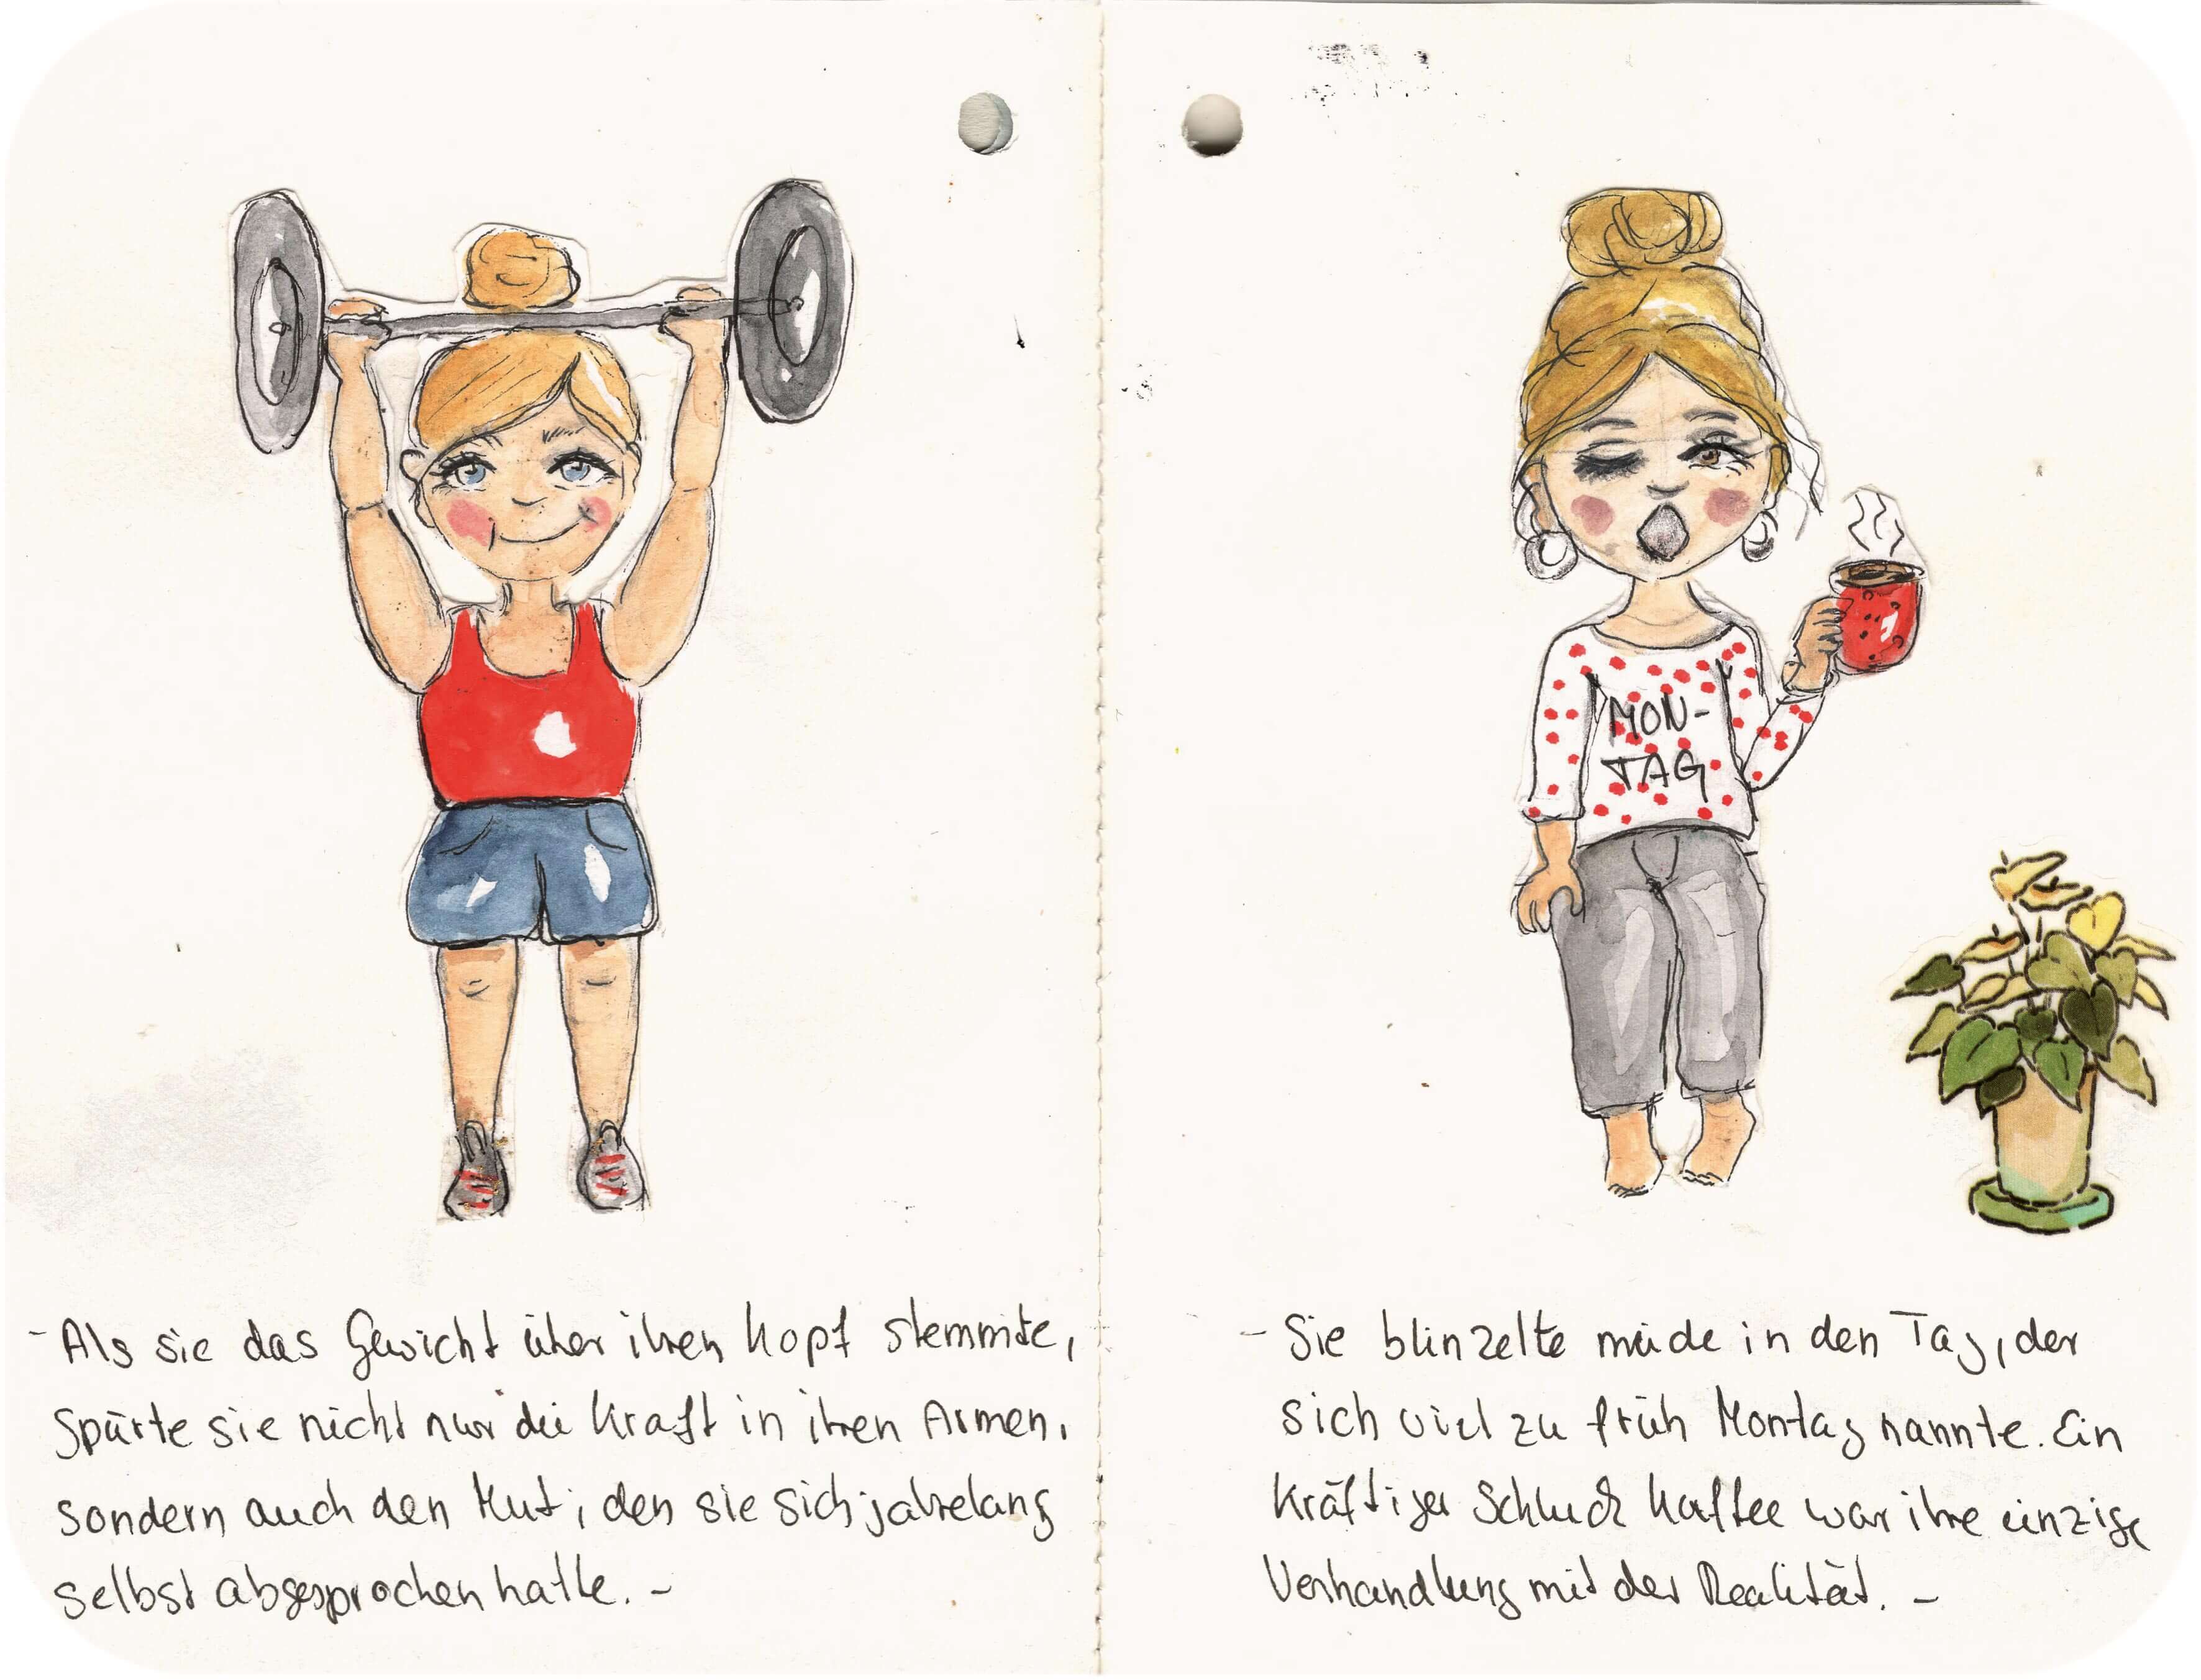 MON-
TAG
- Als sie das Gewicht über ihren Kopf stemmte,
spürte sie nicht nur die Kraft in ihren Armen,
sondern auch den Mut, den sie sich jahrelang
selbst abgesprochen hatte. -
- Sie blinzelte müde in den Tag, der
sich viel zu früh Montag nannte. Ein
kräftiger Schluck Kaffee war ihre einzige
Verhandlung mit der Realität. -